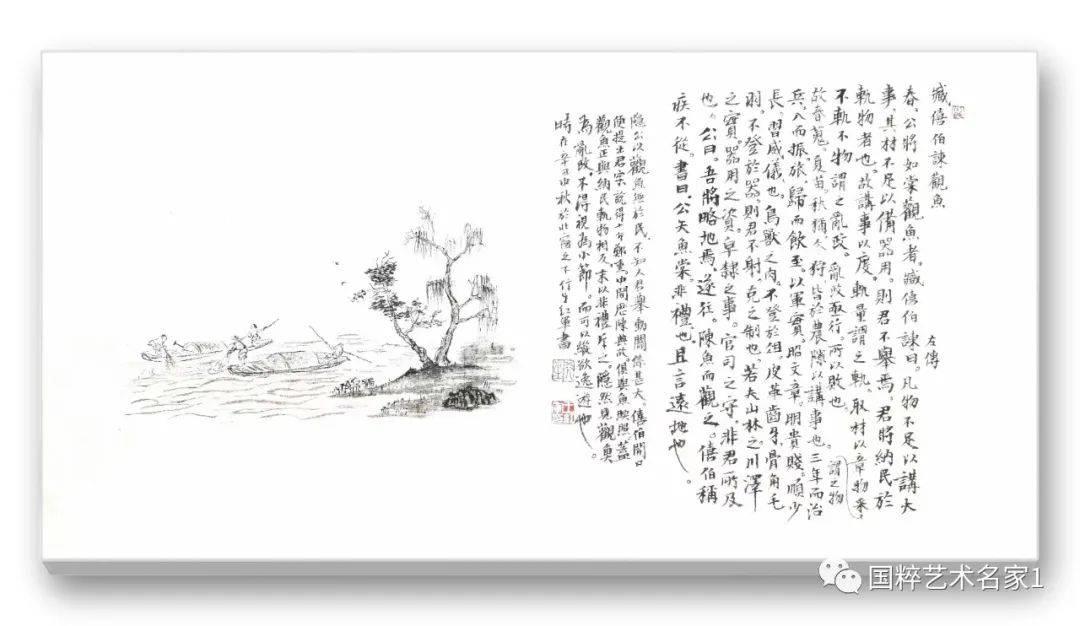 臧僖伯諫觀魚
左傳
春,公將如棠觀魚者。臧僖伯諫曰。凡物不足以講大
事,其材不足以備器用。則君不舉焉。君將納民於
軌物者也。故講事以度。軌量謂之軌,取材以章物采
謂之物
不軌不物謂之亂政。亂政亟行。所以敗也
故春蒐。夏苗。秋獮。冬狩。皆於農隙以講事也。三年而治
兵,入而振旅,歸而飲至,以軍實。昭文章。明貴賤。順少
長,習威儀也。鳥獸之肉。不登於俎,皮革齒牙,骨角毛
羽。不登於器,則君不射,克之制也。若夫山林之川澤
之實。器用之資。皁隸之事。官司之守,非君所及
也。公曰。吾將略地焉,遂往。陳魚而觀之。僖伯稱
疾不從。書曰,公矢魚棠。非禮也,且言遠地也。
隱公以觀魚無於民,不知人君舉動關係甚大。僖伯開口
便提出君字,說得十分鄭重。中間歷陳典故。俱與魚映照。蓋
觀魚正與納民軌物相反。末以非禮斥之。隱然見觀魚
為亂政,不得視為小節,而可以縱欲逸遊也。
時在辛丑中秋於北窗之下 紅軍書
国粹艺术名家1